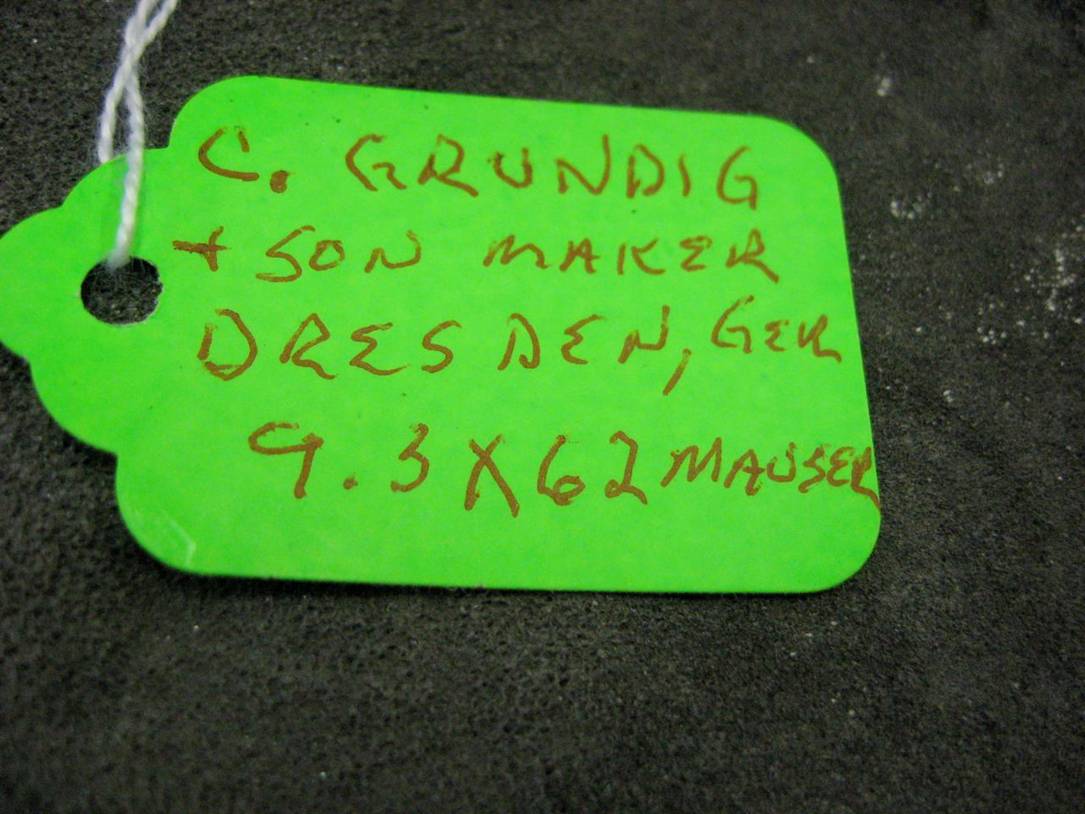 C. GRUNDIG
+ SON MAKER
DRESDEN, GER
9.3 X 62 MAUSER